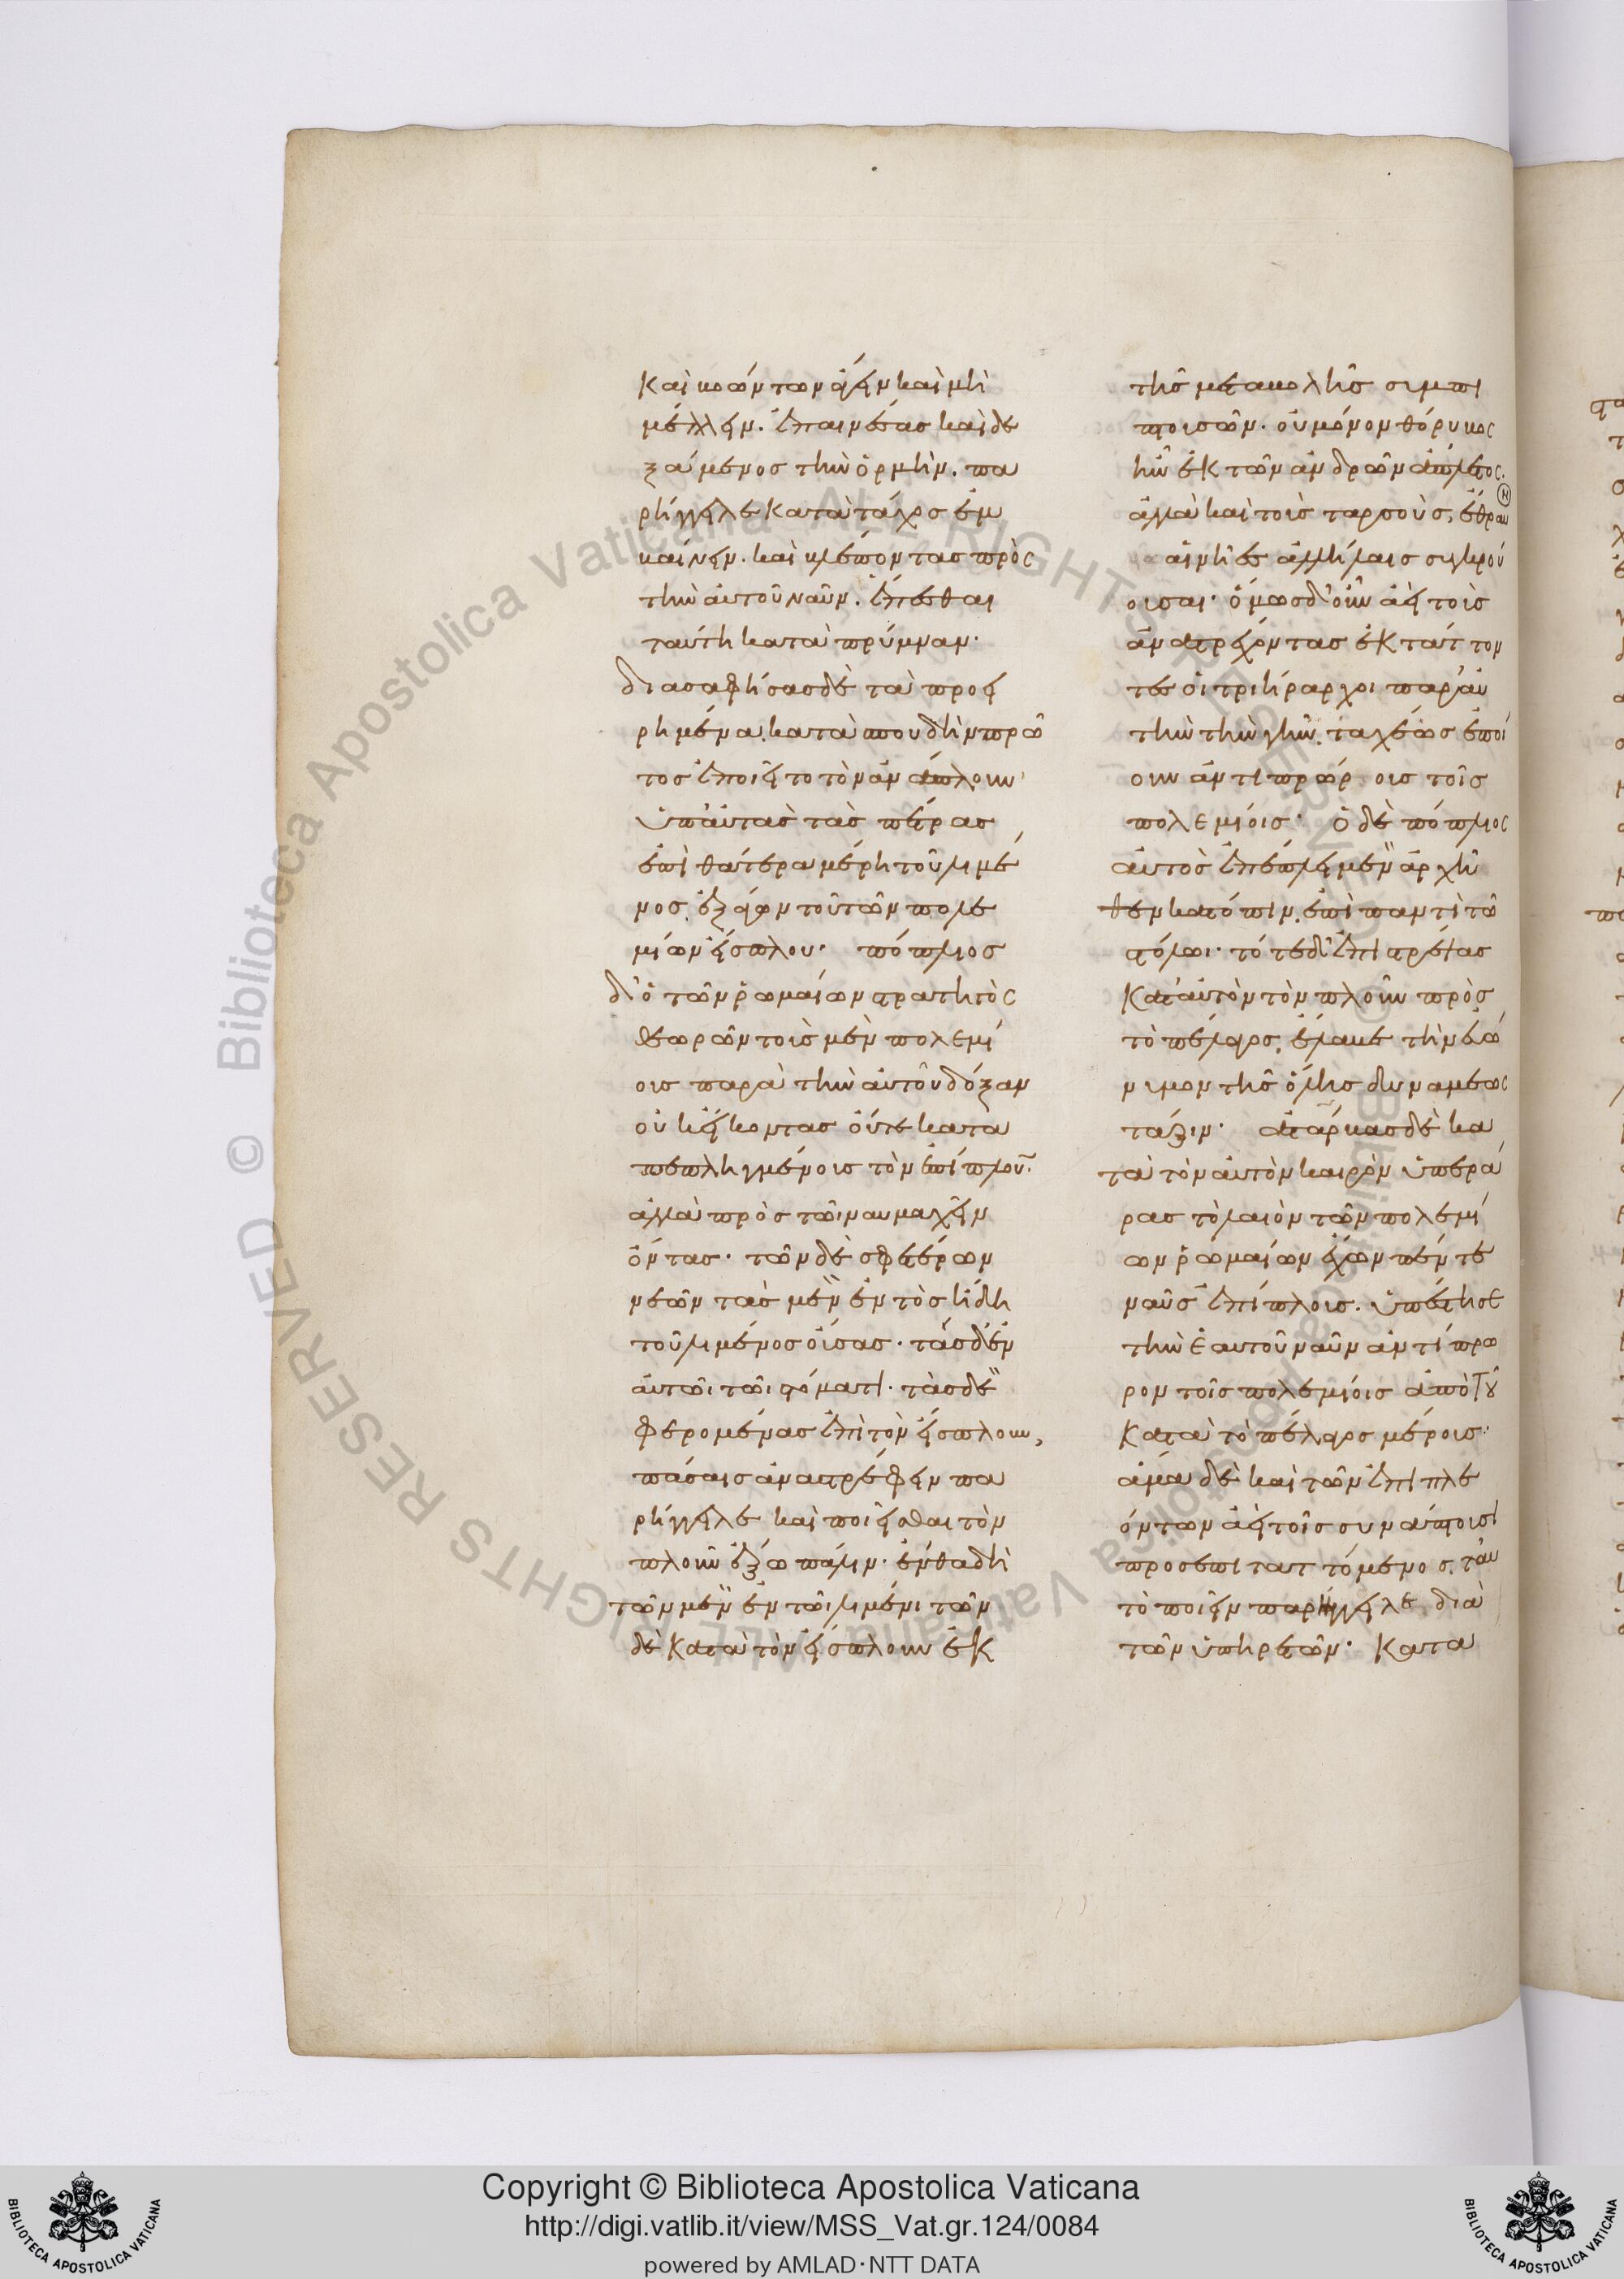 καὶ βοώντων ἄγειν καὶ μὴ
μέλλειν. ἐπαινέσας καὶ δε
ξάμενος τὴν ὁρμὴν. πα
ρήγγειλε κατὰ τάχος ἐμ
βαίνειν. καὶ βλέποντας πρὸς
τὴν ἀυτοῦ ναῦν. ἕπεσθαι
ταύτη κατὰ πρύμναν·
διασαφήσας δὲ τὰ προει
ρημένα. κατὰ σπουδὴν πρῶ
τος ἐποιεῖτο τὸν ἀνάπλουν·
ὑπ' ἀυτὰς τὰς πέτρας
ἐπὶ θάτερα μέρη τοῦ λιμέ
νος. ἐξάγων τοῦ τῶν πολε
μίων εἴσπλου· πόπλιος
δ' ὁ τῶν ῥωμαίων στρατηγὸς
θεωρῶν τοὺς μὲν πολεμί
ους παρὰ τὴν ἀυτοῦ δόξαν
οὐκ εἴκοντας οὔτε κατα
πεπληγμένους τὸν ἐπίπλουν·
ἀλλὰ πρὸς τῶι ναυμαχεῖν
ὄντας· τῶν δὲ σφετέρων
νεῶν τὰς μὲν ἐντὸς ἤδη
τοῦ λιμένος οὔσας· τὰς δ' ἐν
ἀυτῶι τῶι στόματι· τὰς δὲ
φερομένας ἐπὶ τὸν εἴσπλουν,
πάσαις ἀναστρέφειν πα
ρήγγειλε καὶ ποιεῖσθαι τὸν
πλοῦν ἔξω πάλιν· ἔνθα δὴ
τῶν μὲν ἐν τῶι λιμένι τῶν
δὲ κατὰ τὸν εἴσπλουν ἐκ
τῆς μεταβολῆς συμπι
πτουσῶν· οὐ μόνον θόρυβος
ἦν ἐκ τῶν ἀνδρῶν ἄπλετος.
ἀλλὰ καὶ τοὺς ταρσοὺς, ἐθραυ
αἱ νῆες ἀλλήλαις συγκρού
ουσαι· ὅμως δ' οὖν ἀεὶ τοὺς
ἀνατρέχοντας ἐκτάττον
τες οἱ τριήραρχοι παρ' ἀυ
τὴν τὴν γῆν. ταχέως ἐποί
ουν ἀντιπρώρους τοῖς
πολεμίοις· ὁ δὲ πόπλιος
ἀυτὸς ἐπέπλει μὲν ἀρχῆ
θεν κατόπιν. ἐπὶ παντὶ τῶ
στόλωι· τότε δ' ἐπιστρέψας
κατ' ἀυτὸν τὸν πλοῦν πρὸς
τὸ πέλαγος. ἔλαβε τὴν ἐυώ
νυμον τῆς ὅλης δυνάμεως
τάξιν· ἀτάρβας δὲ κα
τὰ τὸν ἀυτὸν καιρὸν ὑπερά
ρας τὸ λαιὸν τῶν πολεμί
ων ῥωμαίων ἔχων πέντε
ναῦς ἐπίπλους. ὑπέστησε
τὴν ἑαυτοῦ ναῦν ἀντίπρω
ρον τοῖς πολεμίοις ἀπὸ τοῦ
κατὰ τὸ πέλαγος μέρους·
ἅμα δὲ καὶ τῶν ἐπιπλε
όντων ἀεὶ τοῖς συνάπτουσι
προσεπιταττόμενος. ταυ
τὸ ποιεῖν παρήγγειλε. διὰ
τῶν ὑπηρετῶν· κατα
Copyright © Biblioteca Apostolica Vaticana
http://digi.vatlib.it/view/MSS_Vat.gr.124/0084
powered by AMLAD·NTT DATA